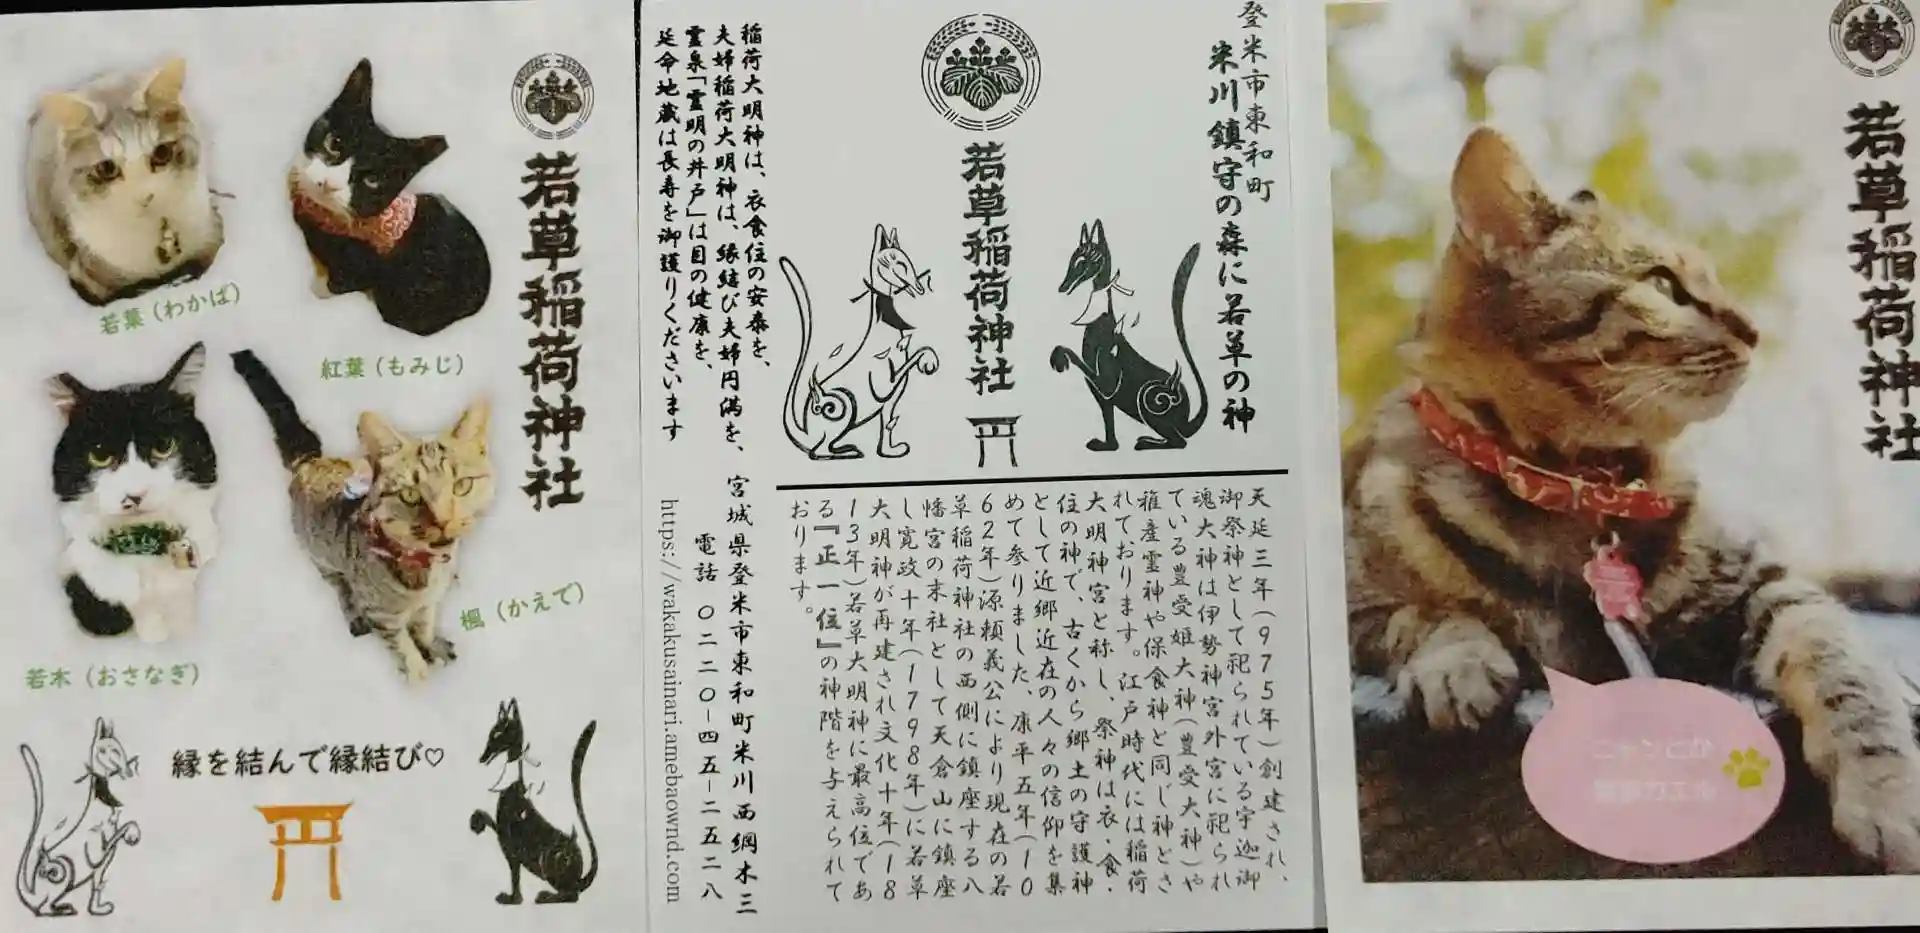 若草稲荷神社
若葉（わかば）
紅葉（もみじ）
若木（おさなぎ）
楓（かえで）
縁を結んで縁結び♡
登米市東和町
米川鎮守の森に若草の神
若草稲荷神社
稲荷大明神は、衣食住の安泰を、
夫婦稲荷大明神は、縁結び夫婦円満を、
霊泉「霊明の井戸」は目の健康を、
延命地蔵は長寿を御護りくださいます
天延三年(975年)創建され、
御祭神として祀られている宇迦御
魂大神は伊勢神宮外宮に祀られ
ている豊受姫大神(豊受大神)や
稚産霊神や保食神と同じ神とさ
れております。江戸時代には稲荷
大明神宮と称し、祭神は衣・食・
住の神で、古くから郷土の守護神
として近郷近在の人々の信仰を集
めて参りました、康平五年(10
62年)源頼義公により現在の若
草稲荷神社の西側に鎮座する八
幡宮の末社として天倉山に鎮座
し寛政十年(1798年)に若草
大明神が再建され文化十年(18
13年)若草大明神に最高位であ
る『正一位』の神階を与えられて
おります。
宮城県登米市東和町米川西綱木三
電話 〇二二〇-四五-二五二八
https://wakakusainari.amebaownd.com
若草稲荷神社
ニャンとか
無事カエル